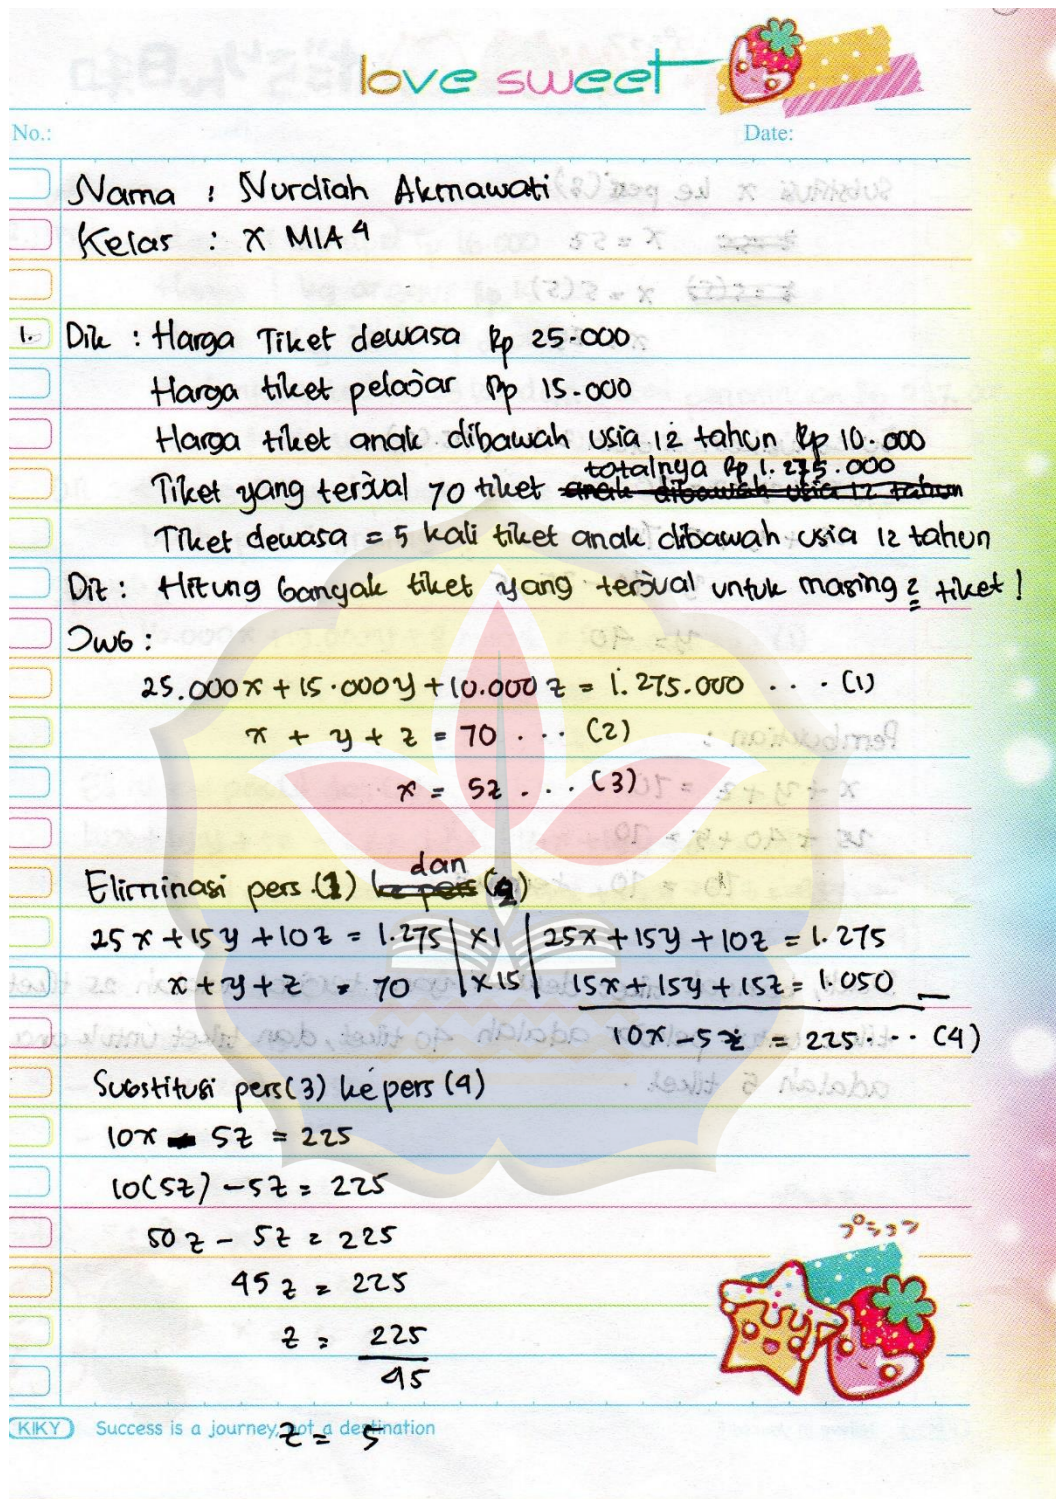 love sweet
No.: Date:
Nama : Nurdiah Akmawati
Kelas : X MIA 4
1. Dik : Harga Tiket dewasa Rp 25.000
Harga tiket pelajar Rp 15.000
Harga tiket anak dibawah usia 12 tahun Rp 10.000
totalnya Rp 1.275.000
Tiket yang terjual 70 tiket anak dibawah usia 12 tahun
Tiket dewasa = 5 kali tiket anak dibawah usia 12 tahun
Dit : Hitung banyak tiket yang terjual untuk masing 2 tiket !
Jwb :
25.000x + 15.000y + 10.000z = 1.275.000 . . . (1)
x + y + z = 70 . . . (2)
x = 5z . . . (3)
dan
Eliminasi pers (1) ke pers (2)
25x + 15y + 10z = 1.275 | x1 | 25x + 15y + 10z = 1.275
x + y + z = 70 | x15 | 15x + 15y + 15z = 1.050 _
10x - 5z = 225 . . . (4)
Substitusi pers (3) ke pers (4)
10x - 5z = 225
10(5z) - 5z = 225
50z - 5z = 225
プション
45z = 225
z = 225
45
KIKY Success is a journey, not a destination
z = 5